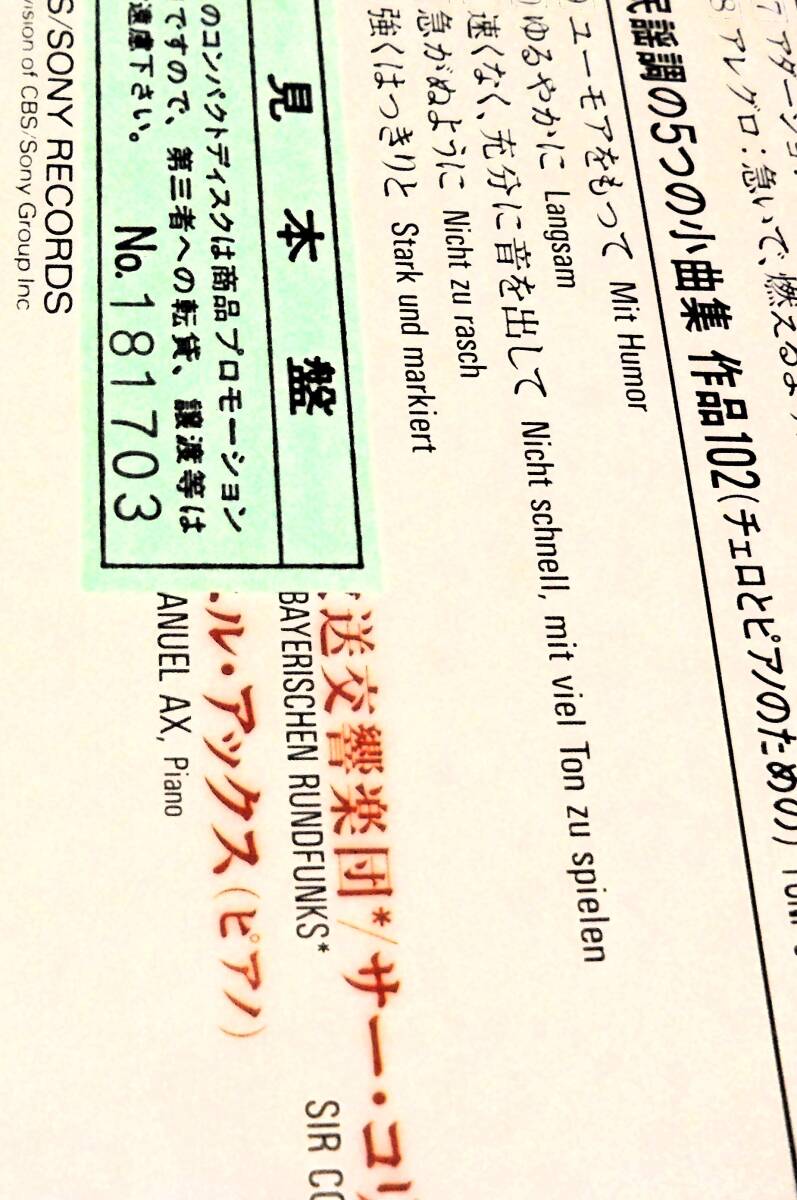 7 アダージョ
8 アレグロ：急いで、燃えるよ
民謡調の5つの小曲集 作品102(チェロとピアノのための)
ユーモアをもって Mit Humor
ゆるやかに Langsam
速くなく、充分に音を出して Nicht schnell, mit viel Ton zu spielen
急がぬように Nicht zu rasch
強くはっきりと Stark und markiert
見本盤
のコンパクトディスクは商品プロモーション
ですので、第三者への転貸、譲渡等は
遠慮下さい。 No.181703
送交響楽団*/サー・コリ
BAYERISCHEN RUNDFUNKS* SIR CO
ル・アックス(ピアノ)
ANUEL AX, Piano
S/SONY RECORDS
vision of CBS/Sony Group Inc